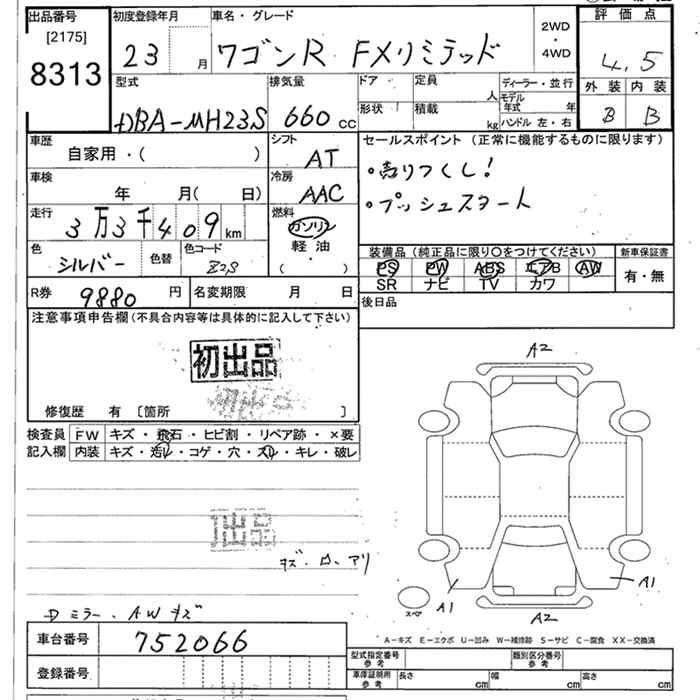 出品番号 初度登録年月 車名・グレード 評価点
[2175]
8313 23 月 ワゴンR FXリミテッド 2WD・4WD 4.5
外装 内装
B B
型式 排気量 ドア 定員 人 ディーラー・並行
DBA-MH23S 660 cc 形状 積載 kg モデル年式 年
ハンドル 左・右
車歴 シフト セールスポイント (正常に機能するものに限ります)
自家用・( ) AT ・売りつくし!
車検 冷房 ・プッシュスタート
年 月( 日) AAC
走行 燃料
3万3千409km ガソリン
軽油
( )
色 色替 色コード
シルバー Z2S
装備品 (純正品に限り○をつけてください) 新車保証書
PS PW ABS エアB AW 有・無
SR ナビ TV カワ
R券 9880 円 名変期限 月 日 後日品
注意事項申告欄(不具合内容等は具体的に記入して下さい)
初出品
修復歴 有 [箇所 ]
検査員 FW キズ・飛石・ヒビ割・リペア跡・×要
記入欄 内装 キズ・汚レ・コゲ・穴・スレ・キレ・破レ
A2
出品
キズ・ロ・アリ
A1
スペア A1
A2
Dミラー・AWキズ
A-キズ E-エクボ U-凹み W-補修跡 S-サビ C-腐食 XX-交換済
車台番号 752066
型式指定番号 参考 類別区分番号 参考
登録番号 車庫証明用 参考 長さ cm 幅 cm 高さ cm